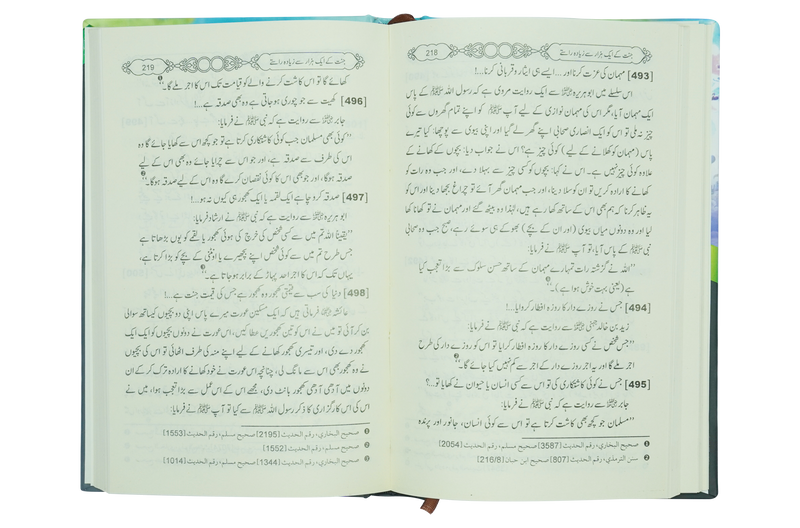 218
جنت کے ایک ہزار سے زیادہ راستے
[493] مہمان کی عزت کرنا اور... ایسے ہی ایثار و قربانی کرنا...!
اس سلسلے میں ابو ہریرہ رضی اللہ عنہ سے ایک روایت مروی ہے کہ رسول اللہ ﷺ کے پاس
ایک مہمان آیا، مگر اس کی مہمان نوازی کے لیے آپ ﷺ کو اپنے تمام گھروں سے کوئی
چیز نہ ملی تو اس کو ایک انصاری صحابی اپنے گھر لے گیا اور اپنی بیوی سے پوچھا: کیا تیرے
پاس (مہمان کو کھلانے کے لیے) کوئی چیز ہے؟ اس نے جواب دیا: بچوں کے کھانے کے
علاوہ کوئی چیز نہیں ہے۔ اس نے کہا: بچوں کو کسی چیز سے بہلا دے، اور جب وہ رات کو
کھانے کا ارادہ کریں تو ان کو سلا دینا، اور جب مہمان گھر آئے تو چراغ بجھا دینا اور اس کو
یہ ظاہر کرنا کہ ہم بھی اس کے ساتھ کھا رہے ہیں، لہٰذا وہ بیٹھ گئے اور مہمان نے تو کھانا کھا
لیا اور وہ دونوں میاں بیوی (اور ان کے بچے) بھوکے ہی سوئے رہے، صبح جب وہ صحابی
نبی ﷺ کے پاس آیا، تو آپ ﷺ نے فرمایا:
”اللہ نے گزشتہ رات تمہارے مہمان کے ساتھ حسن سلوک سے بڑا تعجب کیا
ہے (یعنی بہت خوش ہوا ہے)۔“❶
[494] جس نے روزے دار کا روزہ افطار کروایا...!
زید بن خالد جہنی رضی اللہ عنہ سے روایت ہے کہ نبی ﷺ نے فرمایا:
”جس شخص نے کسی روزے دار کا روزہ افطار کرایا تو اس کو روزے دار کی طرح
اجر ملے گا اور یہ اجر روزے دار کے اجر سے کم نہیں کیا جائے گا۔“❷
[495] جس نے کوئی کاشتکاری کی تو اس سے کسی انسان یا حیوان نے کھایا تو...؟
جابر رضی اللہ عنہ سے روایت ہے کہ نبی ﷺ نے فرمایا:
”مسلمان جو کچھ بھی کاشت کرتا ہے تو اس سے کوئی انسان، جانور اور پرندہ
❶ صحیح البخاري، رقم الحدیث [3587] صحیح مسلم، رقم الحدیث [2054]
❷ سنن الترمذي، رقم الحدیث [807] صحیح ابن حبان [216/8]
جنت کے ایک ہزار سے زیادہ راستے
219
کھائے گا تو اس کا کاشت کرنے والے کو قیامت تک اس کا اجر ملے گا۔“❶
[496] کھیت سے جو چوری ہو جاتی ہے وہ بھی صدقہ ہے...!
جابر رضی اللہ عنہ سے روایت ہے کہ نبی ﷺ نے فرمایا:
”کوئی بھی مسلمان جب کوئی کاشتکاری کرتا ہے تو جو کچھ اس سے کھایا جائے گا وہ
اس کی طرف سے صدقہ ہے، اور جو اس سے چرایا جائے وہ بھی اس کے لیے
صدقہ ہوگا، اور جو بھی اس کا کوئی نقصان کرے گا وہ اس کے لیے صدقہ ہوگا۔“❷
[497] صدقہ کرو چاہے ایک لقمہ یا ایک کھجور ہی کیوں نہ ہو...!
ابو ہریرہ رضی اللہ عنہ سے روایت ہے کہ نبی ﷺ نے ارشاد فرمایا:
”یقیناً اللہ تم میں سے کسی شخص کی خرچ کی ہوئی کھجور یا لقمے کو یوں بڑھاتا ہے
جس طرح تم میں سے کوئی شخص اپنے بچھیرے یا اونٹنی کے بچے کو بڑا کرتا ہے،
یہاں تک کہ اس کا اجر احد پہاڑ کے برابر ہو جاتا ہے۔“❸
[498] دنیا کی سب سے قیمتی کھجور وہ کھجور ہے جس کی قیمت جنت ہے...!
عائشہ رضی اللہ عنہا فرماتی ہیں کہ ایک مسکین عورت میرے پاس اپنی دو بچیوں کیساتھ سوالی
بن کر آئی تو میں نے اس کو تین کھجوریں عطا کیں، اس عورت نے دونوں بچیوں کو ایک ایک
کھجور دے دی، اور تیسری کھجور کھانے کے لیے اپنے منہ کی طرف اٹھائی تو اس کی بچیوں
نے وہ کھجور بھی اس سے مانگ لی، چنانچہ اس عورت نے خود کھانے کا ارادہ ترک کر کے ان
دونوں میں آدھی آدھی کھجور بانٹ دی، مجھے اس کے اس عمل سے بڑا تعجب ہوا، میں نے
اس کی اس کارگزاری کا ذکر رسول اللہ ﷺ سے کیا تو آپ ﷺ نے فرمایا:
❶ صحیح البخاري، رقم الحدیث [2195] صحیح مسلم، رقم الحدیث [1553]
❷ صحیح مسلم، رقم الحدیث [1552]
❸ صحیح البخاري، رقم الحدیث [1344] صحیح مسلم، رقم الحدیث [1014]